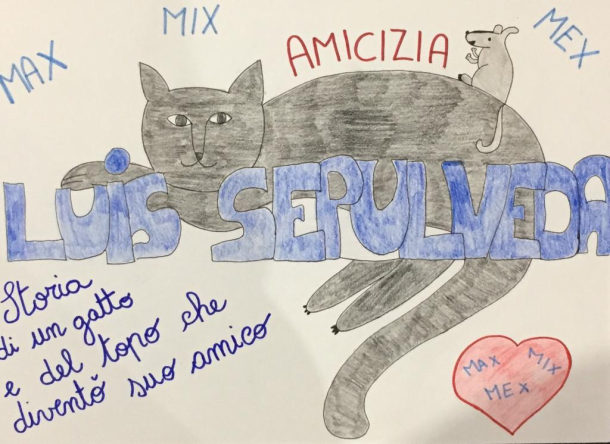 MAX
MIX
AMICIZIA
MEX
LUIS SEPULVEDA
Storia
di un gatto
e del topo che
diventò suo amico
MAX MIX
MEX